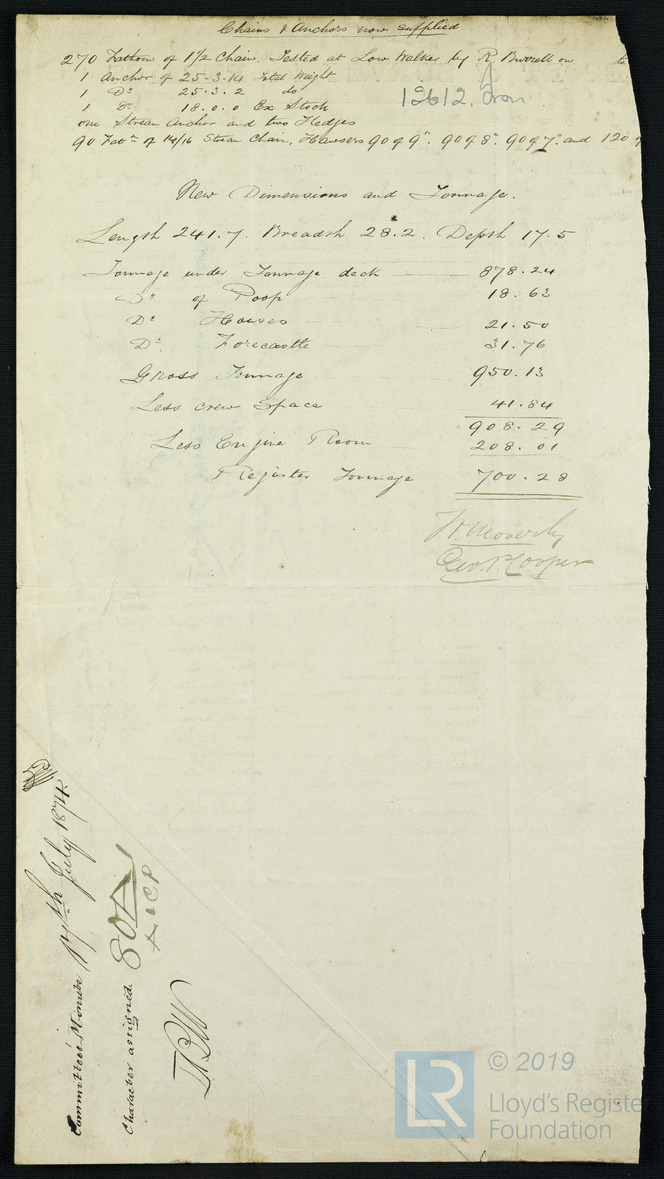 Chains & Anchors now supplied
270 Fathom of 1½ Chain, Tested at Low Walker by R. Burrell on
1 Anchor of 25.3.14 Total Weight
1 Do 25.3.2 do
1 Do 18.0.0 Ex Stock
12612. Iron
one Stream Anchor and two Kedges
90 Fatm of 14/16 Stream Chain, Hawsers 90 of 9". 90 of 8". 90 of 7" and 120
New Dimensions and Tonnage.
Length 241.7. Breadth 28.2. Depth 17.5
Tonnage under Tonnage deck 878.24
Do of Poop 18.63
Do Houses 21.50
Do Forecastle 31.76
Gross Tonnage 950.13
Less crew Space 41.84
908.29
Less Engine Room 208.01
Register Tonnage 700.28
Geo. P. Cooper
Committee's Minute 17th July 1874
Character assigned. 80A1
© 2019
LR
Lloyd's Register
Foundation